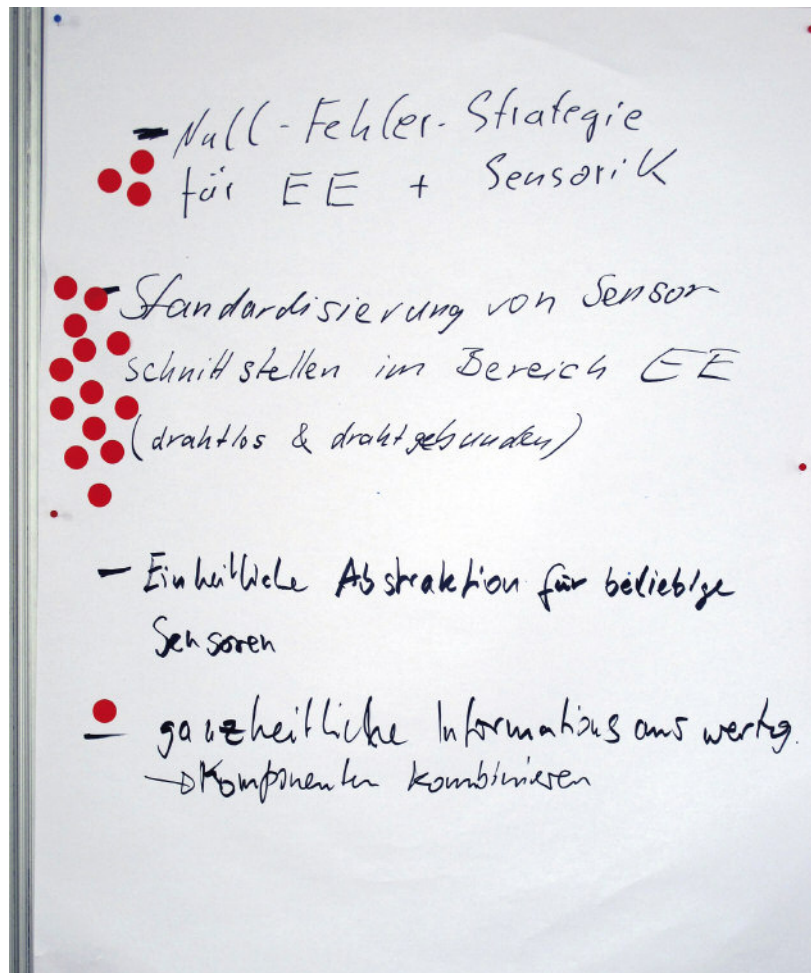 - Null-Fehler-Strategie
für EE + Sensorik
- Standardisierung von Sensor-
schnittstellen im Bereich EE
(drahtlos & drahtgebunden)
- Einheitliche Abstraktion für beliebige
Sensoren
- ganzheitliche Informationsauswertg.
→ Komponenten kombinieren